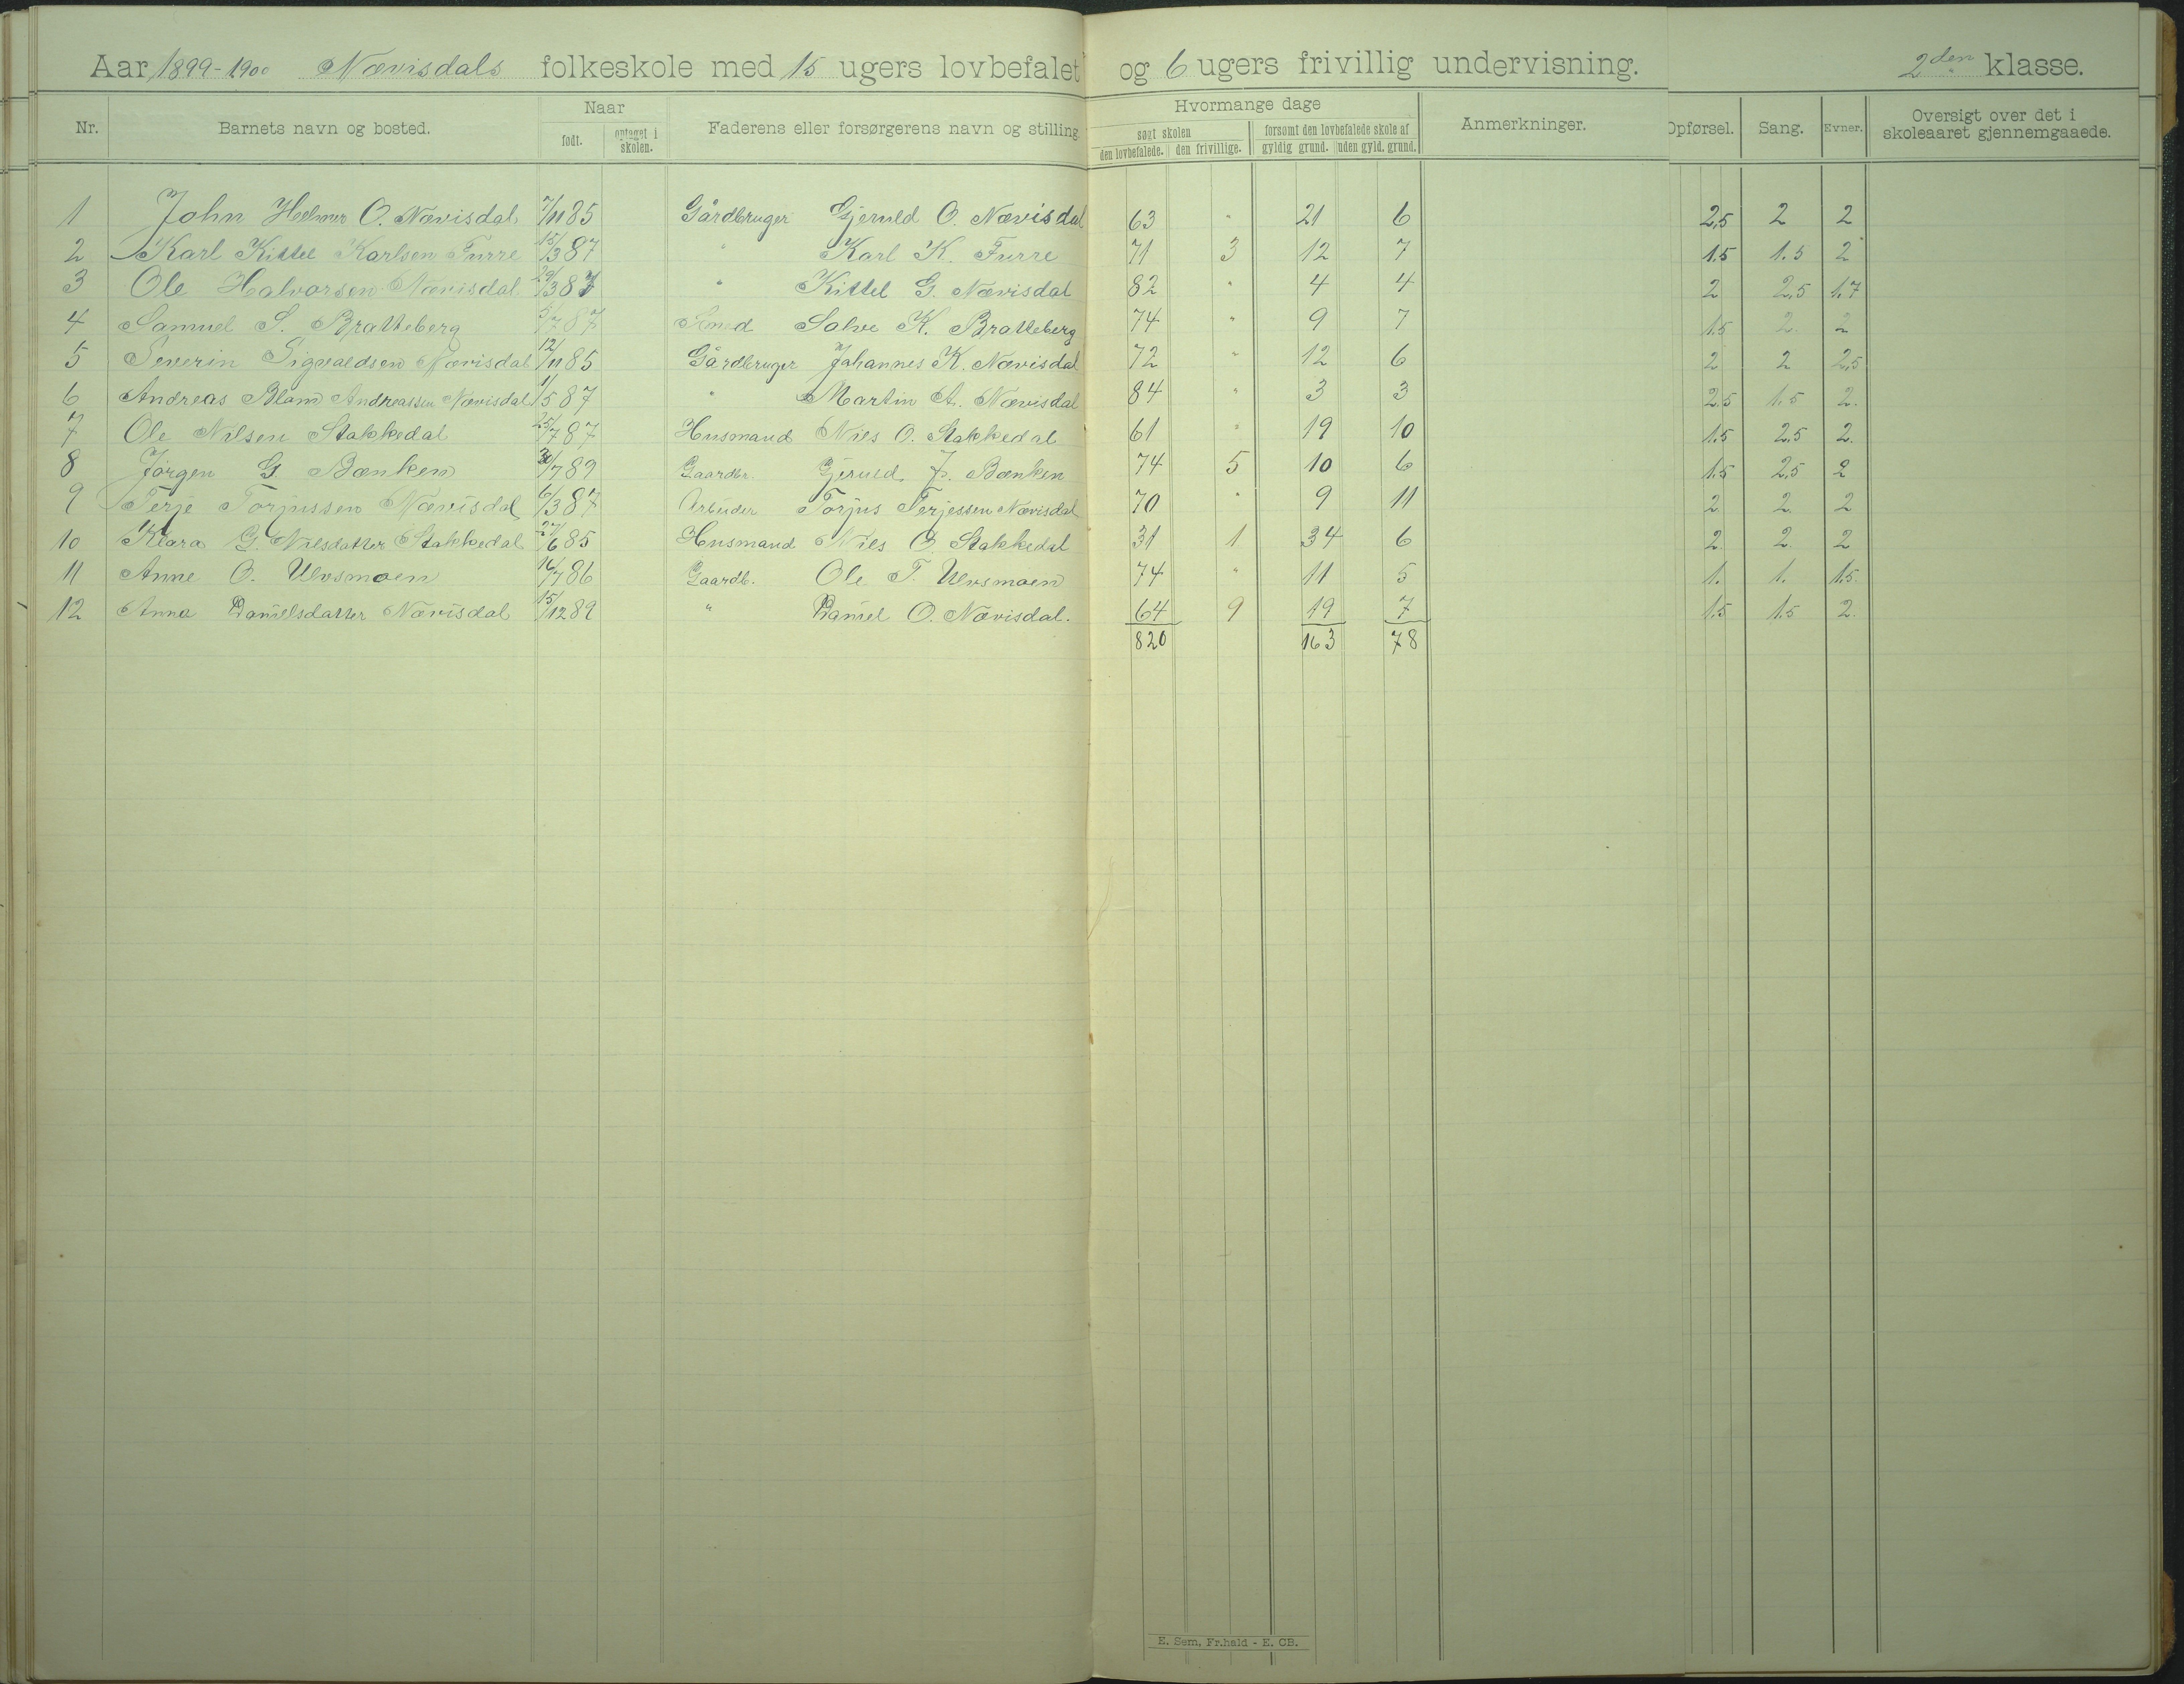 Aar 1899-1900 Nævisdals folkeskole med 15 ugers lovbefalet og 6 ugers frivillig undervisning. 2den klasse.
Nr. Barnets navn og bosted. Naar født. optaget i skolen. Faderens eller forsørgerens navn og stilling Hvormange dage søgt skolen den lovbefalede. den frivillige. forsømt den lovbefalede skole af gyldig grund. uden gyld. grund. Anmerkninger. Opførsel. Sang. Evner. Oversigt over det i skoleaaret gjennemgaaede.
1 John Helmer O. Nævisdal 7/11 85 Gårdbruger Gjeruld O. Nævisdal 63 " 21 6 2,5 2 2
2 Karl Kittel Karlsen Furre 15/3 87 " Karl K. Furre 71 3 12 7 1.5 1.5 2
3 Ole Halvorsen Nævisdal 29/3 87 " Kittel G. Nævisdal 82 " 4 4 2 2,5 1,7
4 Samuel S. Bratteberg 5/7 87 Smed Salve K. Bratteberg 74 " 9 7 1.5 2. 2
5 Severin Sigvaldsen Nævisdal 12/11 85 Gårdbruger Johannes K. Nævisdal 72 " 12 6 2 2 2,5
6 Andreas Blom Andreassen Nævisdal 1/5 87 " Martin A. Nævisdal 84 " 3 3 2.5 1.5 2.
7 Ole Nilsen Stakkedal 25/7 87 Husmand Nils O. Stakkedal 61 " 19 10 1.5 2,5 2.
8 Jörgen G. Bænken 30/7 89 Gaardbr. Gjeruld J. Bænken 74 5 10 6 1.5 2,5 2
9 Terje Torjussen Nævisdal 6/3 87 Arbeider Torjus Terjessen Nævisdal 70 " 9 11 2. 2. 2
10 Klara G. Nilsdatter Stakkedal 27/6 85 Husmand Nils O. Stakkedal 31 1 34 6 2. 2. 2
11 Anne O. Ulvsmoen 16/7 86 Gaardb. Ole T. Ulvsmoen 74 " 11 5 1. 1. 1.5.
12 Anna Danielsdatter Nævisdal 15/12 89 " Daniel O. Nævisdal. 64 9 19 7 1.5 1.5 2.
820 163 78
E. Sem, Fr.hald - E. CB.